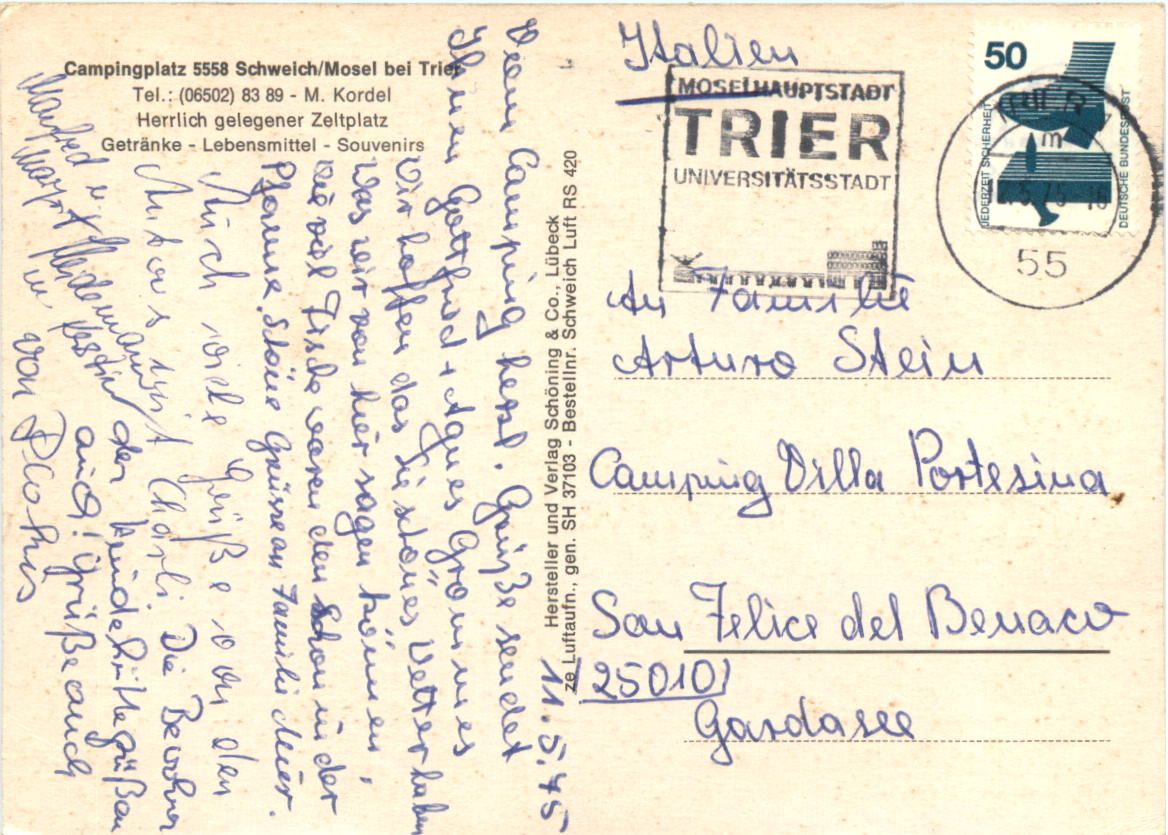 Campingplatz 5558 Schweich/Mosel bei Trier
Tel.: (06502) 83 89 - M. Kordel
Herrlich gelegener Zeltplatz
Getränke - Lebensmittel - Souvenirs
11.5.75
Vom Camping herzl. Grüße sendet
Ihnen Gottfried + Agnes
Wir hoffen das Sie schönes Wetter haben
was wir von hier sagen können,
wieviel Fische waren den schon in der
Pfanne, Schöne Grüsse an Famili
Auch viele Grüße von den
Autos mit Charli Die Bewohner
der grüßen
auch! Grüße auch
von
Manfred u.
Hersteller und Verlag Schöning & Co., Lübeck
ze Luftaufn., gen. SH 37103 - Bestellnr. Schweich Luft RS 420
Italien
MOSELHAUPTSTADT
TRIER
UNIVERSITÄTSSTADT
50
JEDERZEIT SICHERHEIT
DEUTSCHE BUNDESPOST
m
.5.75-16
55
An Familie
Arturo Stein
Camping Villa Portesina
San Felice del Benaco
25010
Gardasee